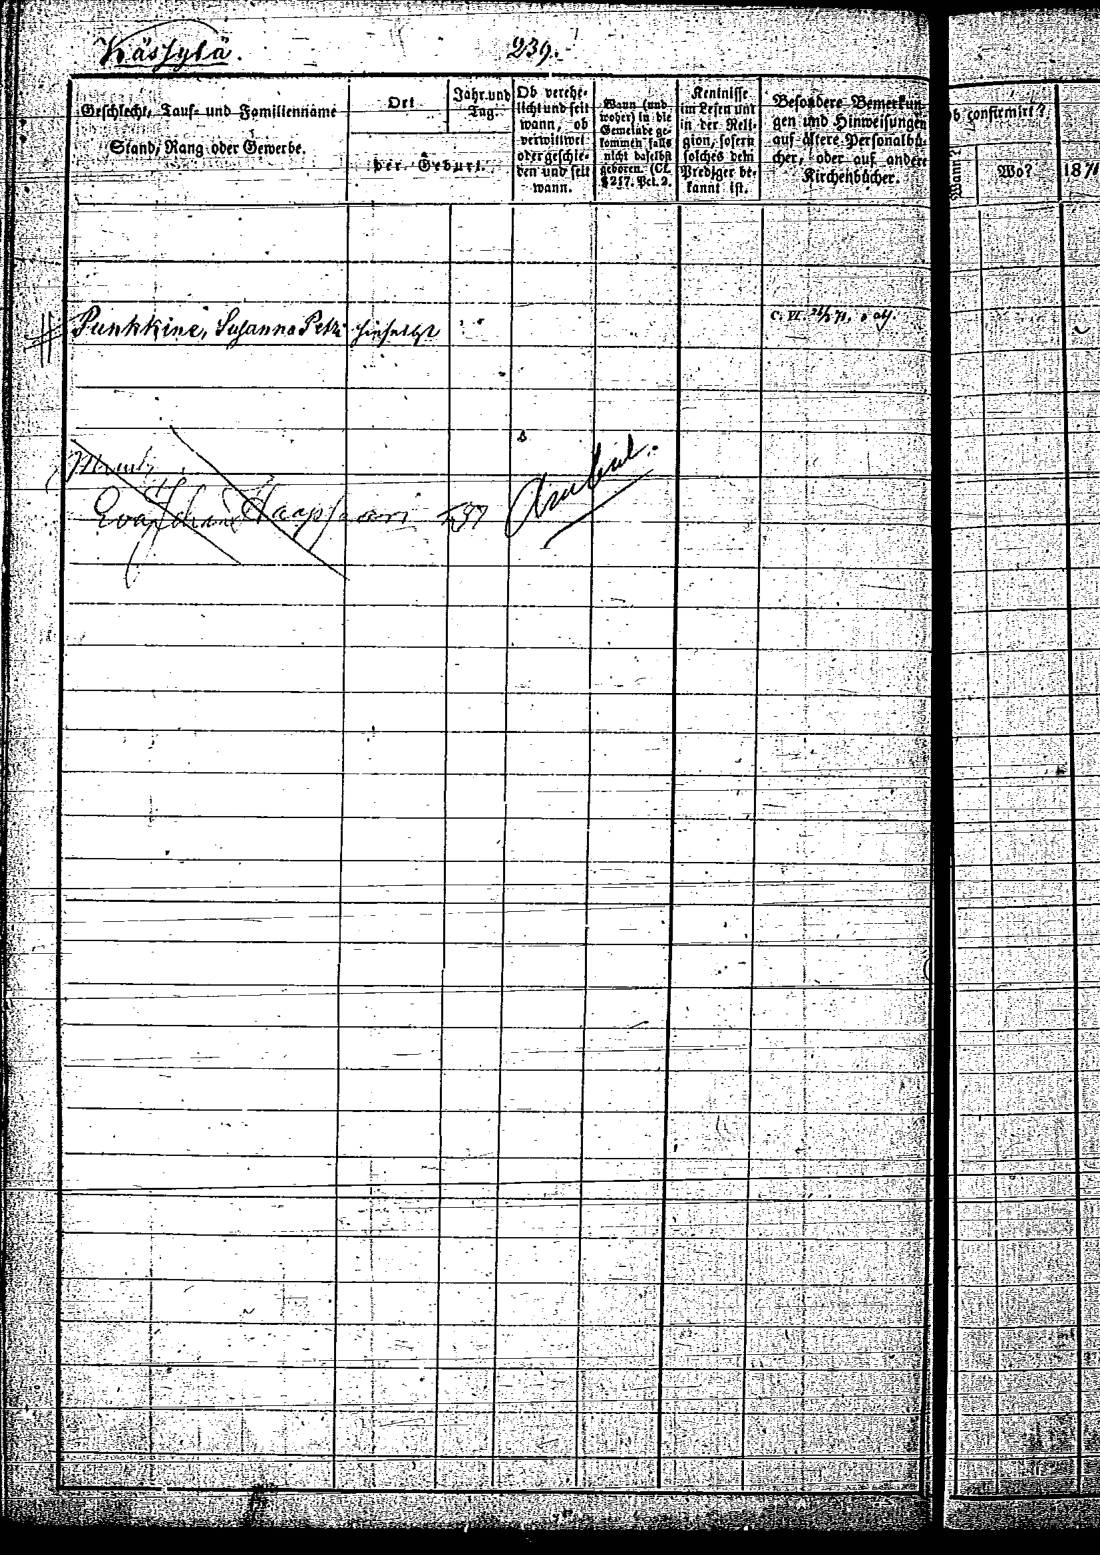 Kässylä. 239.
Geschlecht, Tauf- und Familienname
Stand, Rang oder Gewerbe.
Ort
der Geburt.
Jahr und
Tag.
Ob verehe-
licht und seit
wann, ob
verwittwet
oder geschie-
den und seit
wann.
Wann (und
woher) in die
Gemeinde ge-
kommen falls
nicht daselbst
geboren. (CL
§ 217. Pct. 2.
Kentnisse
im Lesen und
in der Reli-
gion, sofern
solches dem
Prediger be-
kannt ist.
Besondere Bemerkun-
gen und Hinweisungen
auf ältere Personalbü-
cher, oder auf andere
Kirchenbücher.
Ob confirmirt?
Wann?
Wo?
187
Punkkine, Susanna Petr. hieselbst C. VI.
Eva Haapsaari